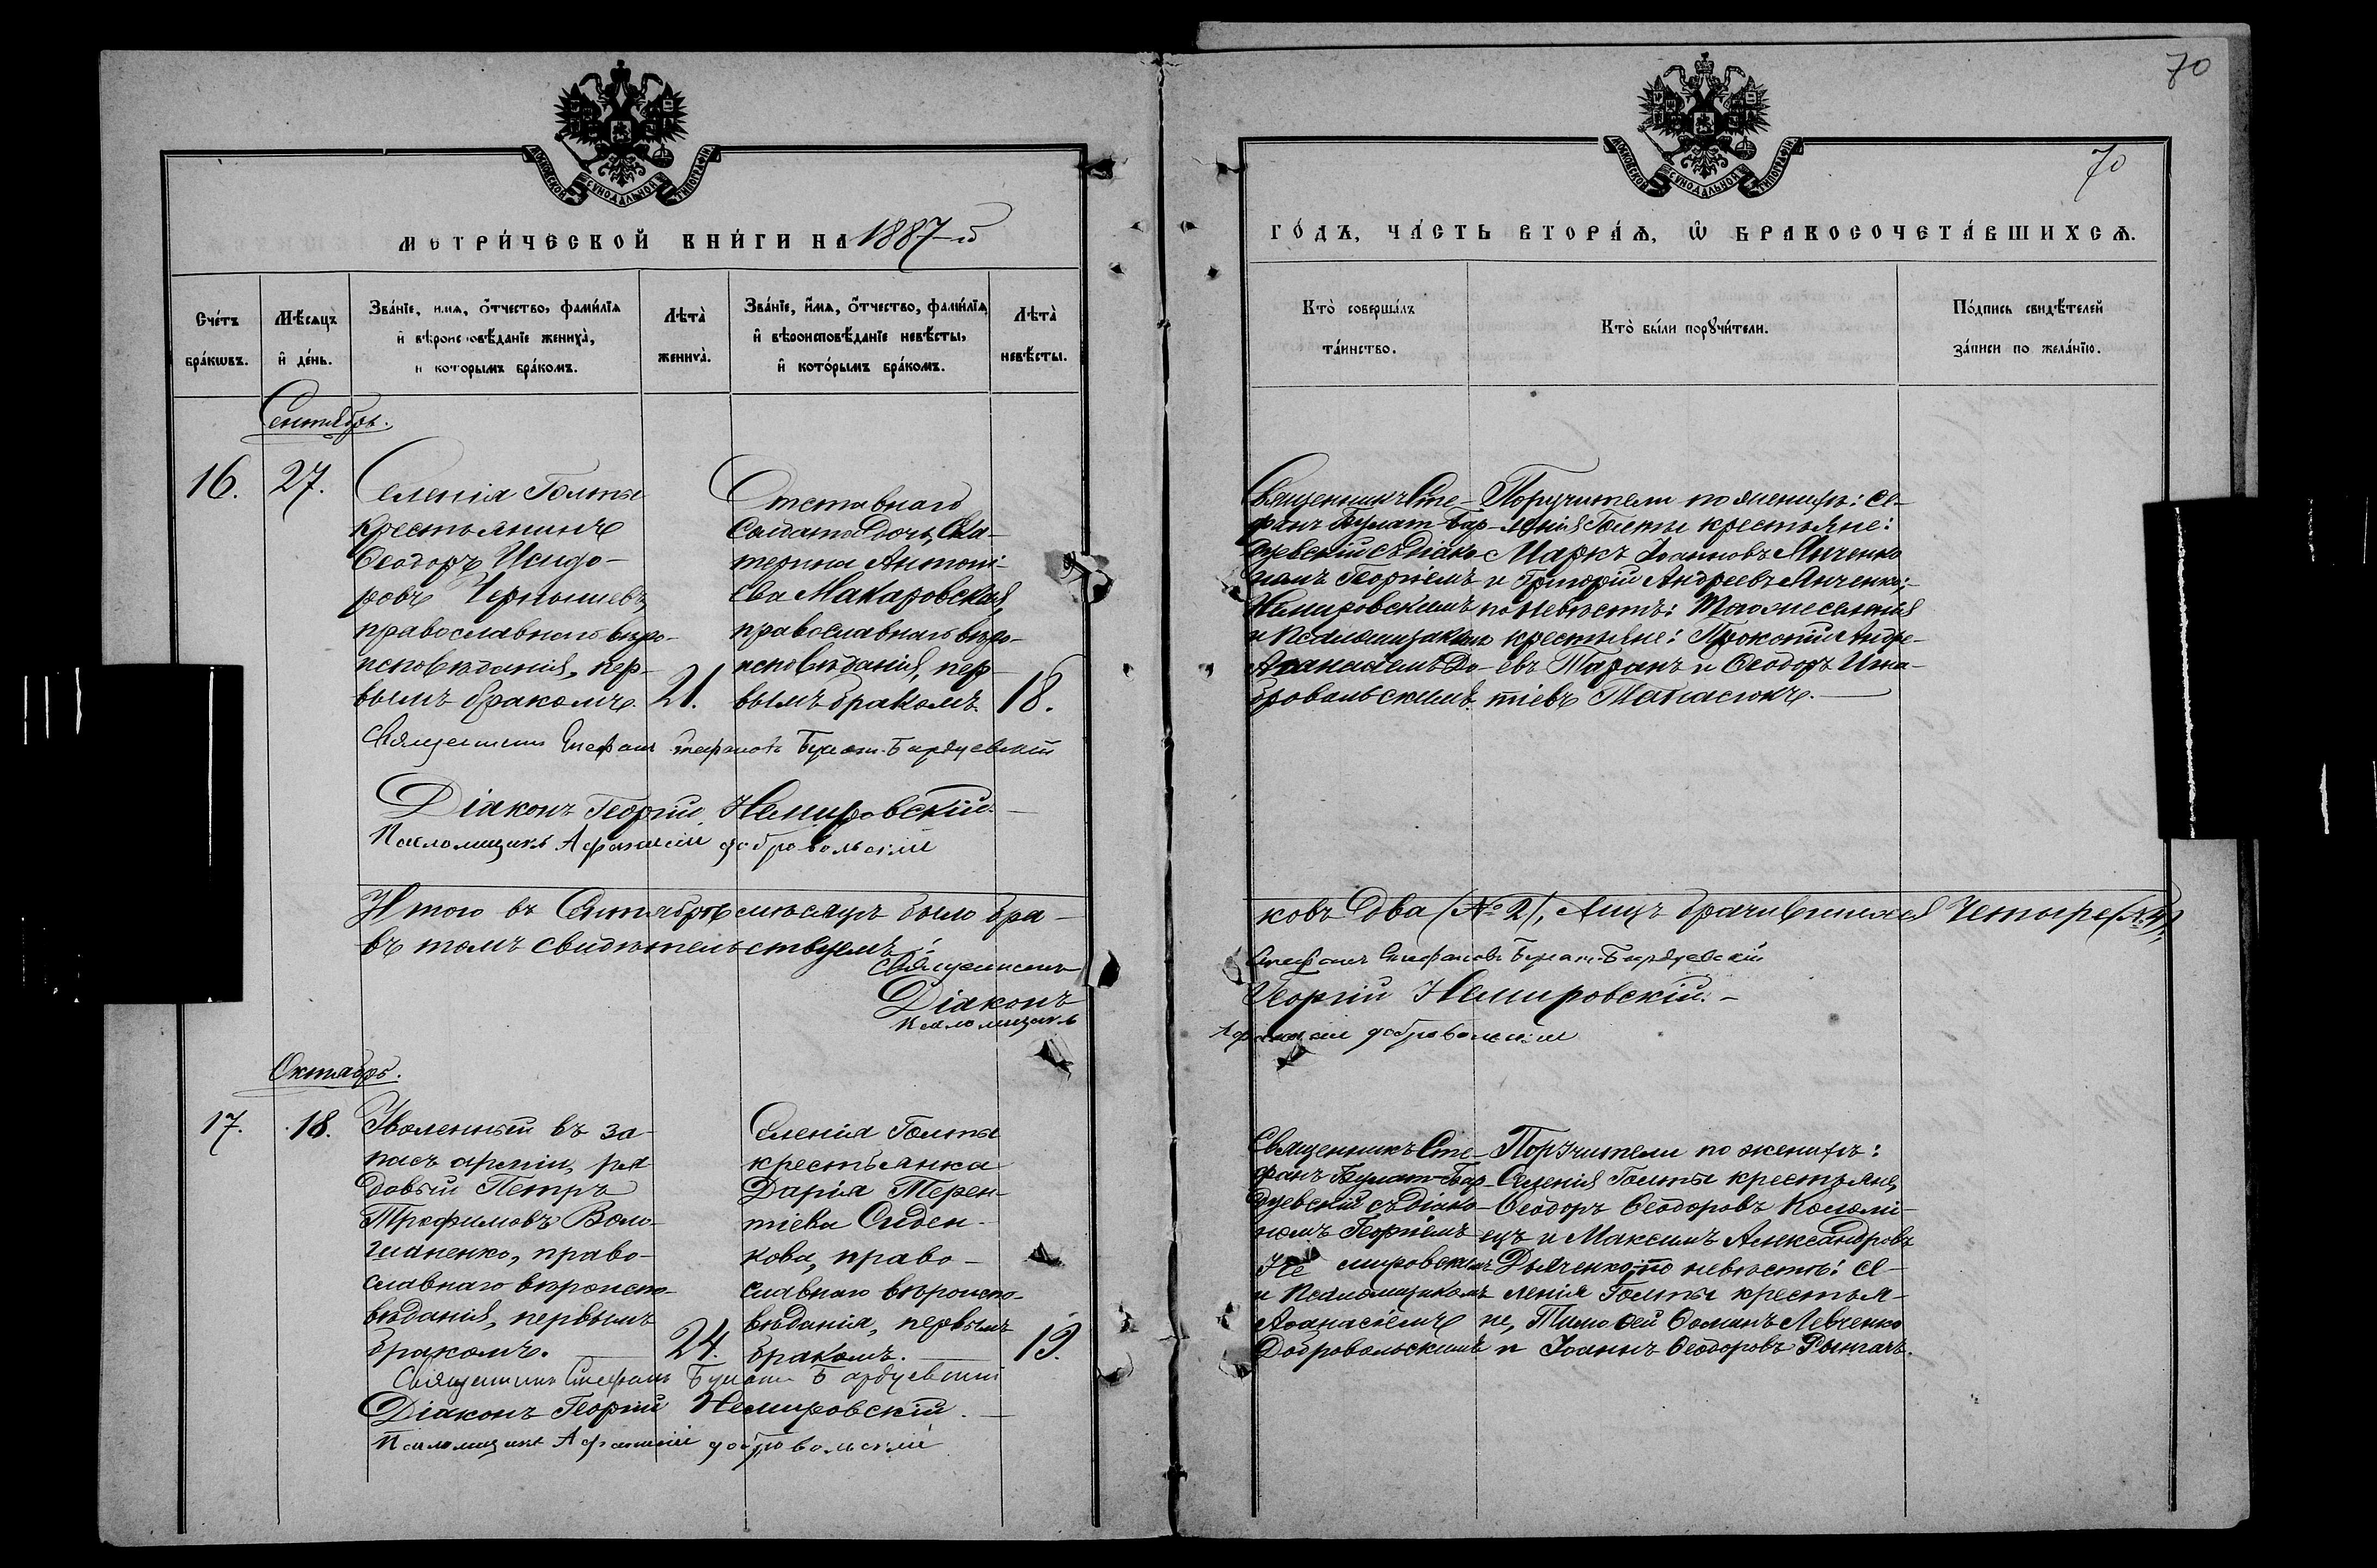 70
МОСКОВСКОЙ СУНОДАЛЬНОЙ ТИПОГРАФІИ
МОСКОВСКОЙ СУНОДАЛЬНОЙ ТИПОГРАФІИ
70
МЕТРИ́ЧЕСКОЙ КНИ́ГИ НА 1887-й
ГО́ДЪ, ЧА́СТЬ ВТОРА́Ѧ, Ѡ҆ БРАКОСОЧЕТА́ВШИХСѦ.
Сче́тъ
бра́кѡвъ.
Мѣ́сѧцъ
и҆ де́нь.
Зва́нїе, и́мѧ, ѻ҆́тчество, фами́лїѧ
и҆ вѣроисповѣ́данїе жениха̀,
и҆ кото́рымъ бра́комъ.
Лѣта̀
жениха̀.
Зва́нїе, и҆́мѧ, ѻ҆́тчество, фами́лїѧ
и҆ вѣроисповѣ́данїе невѣ́сты,
и҆ кото́рымъ бра́комъ.
Лѣта̀
невѣ́сты.
Кто̀ соверша́лъ
та́инство.
Кто̀ бы́ли порꙋчи́тели.
По́дпись свидѣ́телей
за́писи по жела́нїю.
Сентябрь.
16.
27.
Селенія Голты
крестьянинъ
Ѳеодоръ Исидо-
ровъ Чернышевъ,
православнаго вѣро-
исповѣданія, пер-
вымъ бракомъ.
21.
Отставнаго
солдата дочь, Ека-
терина Антоні-
ева Макаровская,
православнаго вѣро-
исповѣданія, пер-
вымъ бракомъ.
18.
Священникъ Сте-
фанъ Булат-Бар-
дуевскій съ діако-
номъ Георгіемъ
Немировскимъ
и Псаломщикомъ
Аѳанасіемъ До-
бровольскимъ.
Поручители по женихѣ: се-
ленія Голты крестьяне:
Маркъ Іоанновъ Янченко
и Григорій Андреевъ Янченко;
по невѣстѣ: Тогоже селенія
крестьяне: Прокопій Андре-
евъ Таранъ и Ѳеодоръ Игна-
тіевъ Танасюкъ.
Священникъ Стефанъ Стефановъ Булат-Бардуевскій
Діаконъ Георгій Немировскій.
Псаломщикъ Афанасій Добровольскій
Итого въ Сентябрѣ мѣсяцѣ было бра-
ковъ Два (№ 2), Лицъ брачившихся Четыре (№ 4),
въ томъ свидѣтельствуемъ:
Священникъ
Стефанъ Стефановъ Булат-Бардуевскій
Діаконъ
Георгій Немировскій.
Псаломщикъ
Афанасій Добровольскій
Октябрь.
17.
18.
Уволенный въ за-
пасъ арміи, ря-
довый Петръ
Трофимовъ Воло-
шаненко, право-
славнаго вѣроиспо-
вѣданія, первымъ
бракомъ.
24.
Селенія Голты
крестьянка
Дарія Терен-
тіева Сиден-
кова, право-
славнаго вѣроиспо-
вѣданія, первымъ
бракомъ.
19.
Священникъ Сте-
фанъ Булат-Бар-
дуевскій съ діако-
номъ Георгіемъ
Немировскимъ
и Псаломщикомъ
Аѳанасіемъ
Добровольскимъ
Поручители по женихѣ:
Селенія Голты крестьяне,
Ѳеодоръ Ѳеодоровъ Коломі-
ецъ и Максимъ Александровъ
Дьяченко; по невѣстѣ: се-
ленія Голты крестья-
не, Тимоѳей Левченко
и Іоаннъ Ѳеодоровъ
Священникъ Стефанъ Булат-Бардуевскій
Діаконъ Георгій Немировскій.
Псаломщикъ Афанасій Добровольскій